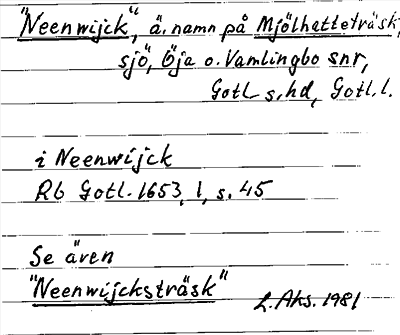 "Neenwijck", ä. namn på Mjölhatteträsk,
sjö, Öja o. Vamlingbo snr,
Gotl s. hd, Gotl. l.
i Neenwijck
Rb Gotl. 1653, 1, s. 45
Se även
"Neenwijcksträsk"
L. Aks. 1981